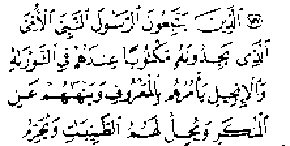 ٱلَّذِينَ يَتَّبِعُونَ ٱلرَّسُولَ ٱلنَّبِىَّ ٱلْأُمِّىَّ
ٱلَّذِى يَجِدُونَهُۥ مَكْتُوبًا عِندَهُمْ فِى ٱلتَّوْرَىٰةِ
وَٱلْإِنجِيلِ يَأْمُرُهُم بِٱلْمَعْرُوفِ وَيَنْهَىٰهُمْ عَنِ
ٱلْمُنكَرِ وَيُحِلُّ لَهُمُ ٱلطَّيِّبَٰتِ وَيُحَرِّمُ